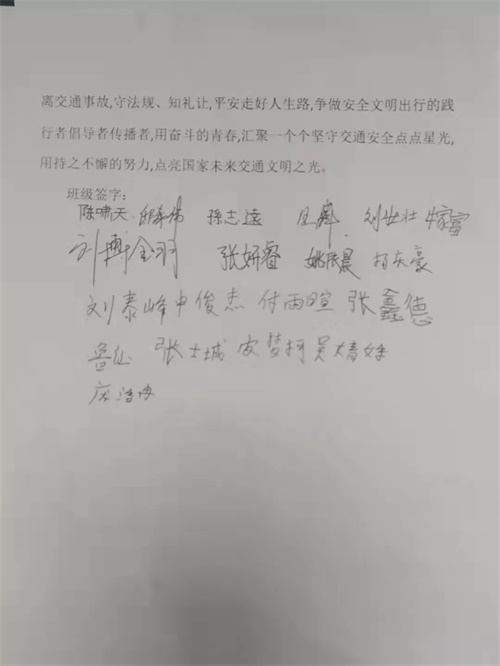 离交通事故,守法规、知礼让,平安走好人生路,争做安全文明出行的践
行者倡导者传播者,用奋斗的青春,汇聚一个个坚守交通安全点点星光,
用持之不懈的努力,点亮国家未来交通文明之光。
班级签字:
陈啸天 孙志远
张妍睿
刘泰峰 申俊杰 付雨暄 张鑫德
张士城 安梦柯 吴婧妤